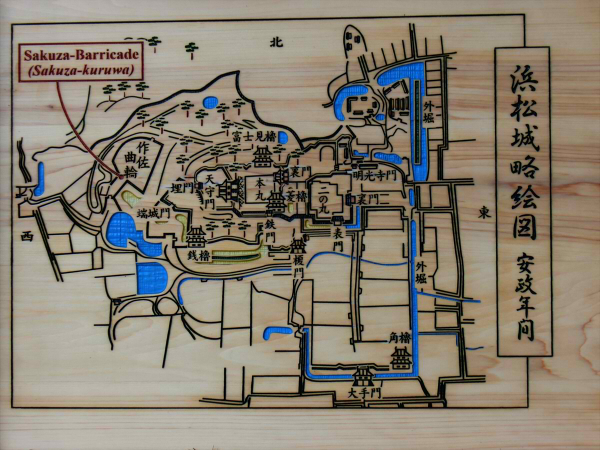 Sakuza-Barricade
(Sakuza-kuruwa)
北
浜松城略絵図 安政年間
外堀
富士見櫓
作佐
曲輪
埋門
天守門
本丸
裏門
菱櫓
二の丸
明光寺門
裏門二
東
西
端城門
鉄門
表門
銭櫓
榎門
外堀
角櫓
大手門